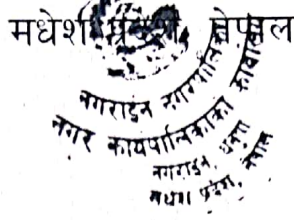 मधेश प्रदेश, नेपाल
नगराईन नगरपालिका
नगर कार्यपालिकाको कार्यालय
नगराईन, धनुषा
मधेश प्रदेश, नेपाल